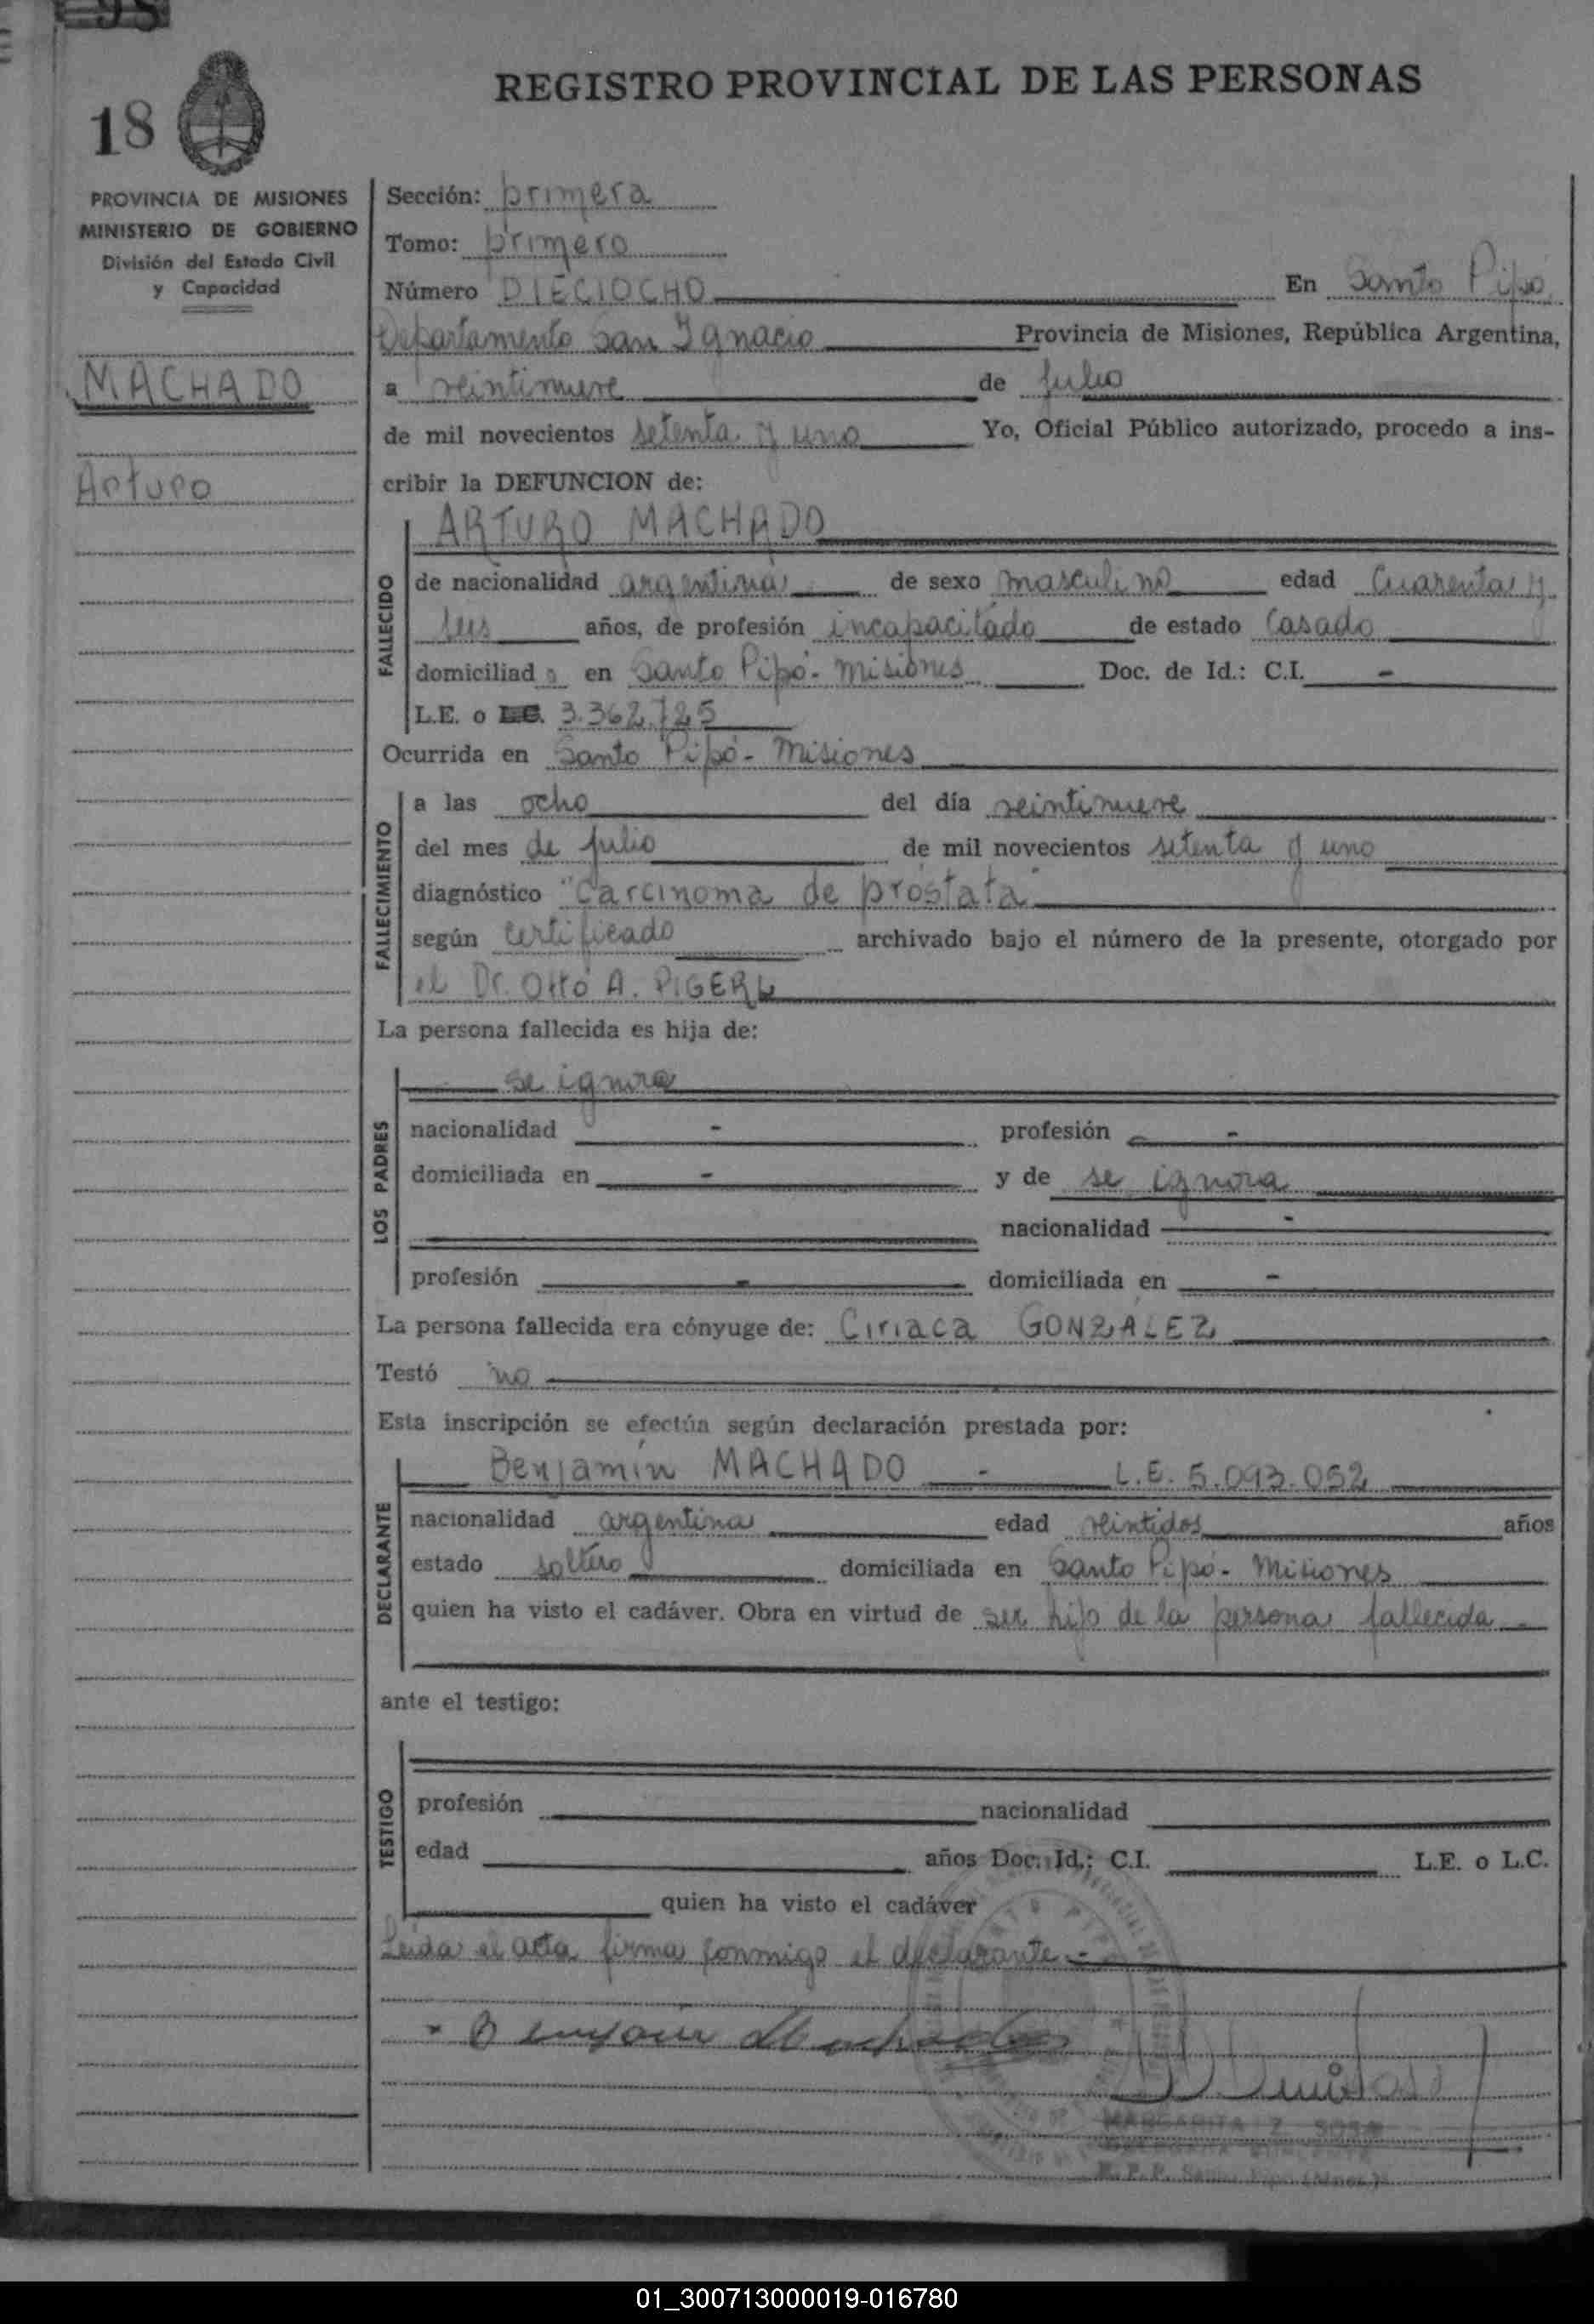 REGISTRO PROVINCIAL DE LAS PERSONAS
18
PROVINCIA DE MISIONES
MINISTERIO DE GOBIERNO
División del Estado Civil
y Capacidad
MACHADO
Arturo
Sección: primera
Tomo: primero
Número DIECIOCHO En Santo Pipó
Departamento San Ignacio Provincia de Misiones, República Argentina,
a veintinueve de julio
de mil novecientos setenta y uno Yo, Oficial Público autorizado, procedo a ins-
cribir la DEFUNCION de:
FALLECIDO
ARTURO MACHADO
de nacionalidad argentina de sexo masculino edad cuarenta y
seis años, de profesión incapacitado de estado casado
domiciliado en Santo Pipó - Misiones Doc. de Id.: C.I. -
L.E. o L.C. 3.362.725
Ocurrida en Santo Pipó - Misiones
FALLECIMIENTO
a las ocho del día veintinueve
del mes de julio de mil novecientos setenta y uno
diagnóstico "Carcinoma de próstata"
según certificado archivado bajo el número de la presente, otorgado por
el Dr. Otto A. PIGERL
La persona fallecida es hija de:
LOS PADRES
se ignora
nacionalidad - profesión -
domiciliada en - y de se ignora
nacionalidad -
profesión - domiciliada en -
La persona fallecida era cónyuge de: Ciriaca GONZALEZ
Testó no
Esta inscripción se efectúa según declaración prestada por:
DECLARANTE
Benjamín MACHADO - L.E. 5.093.052
nacionalidad argentina edad veintidos años
estado soltero domiciliada en Santo Pipó - Misiones
quien ha visto el cadáver. Obra en virtud de ser hijo de la persona fallecida -
ante el testigo:
TESTIGO
profesión nacionalidad
edad años Doc. Id.: C.I. L.E. o L.C.
quien ha visto el cadáver
Leida el acta firma conmigo el declarante -
Benjamin Machado
MARGARITA Z. SOSA
01_300713000019-016780